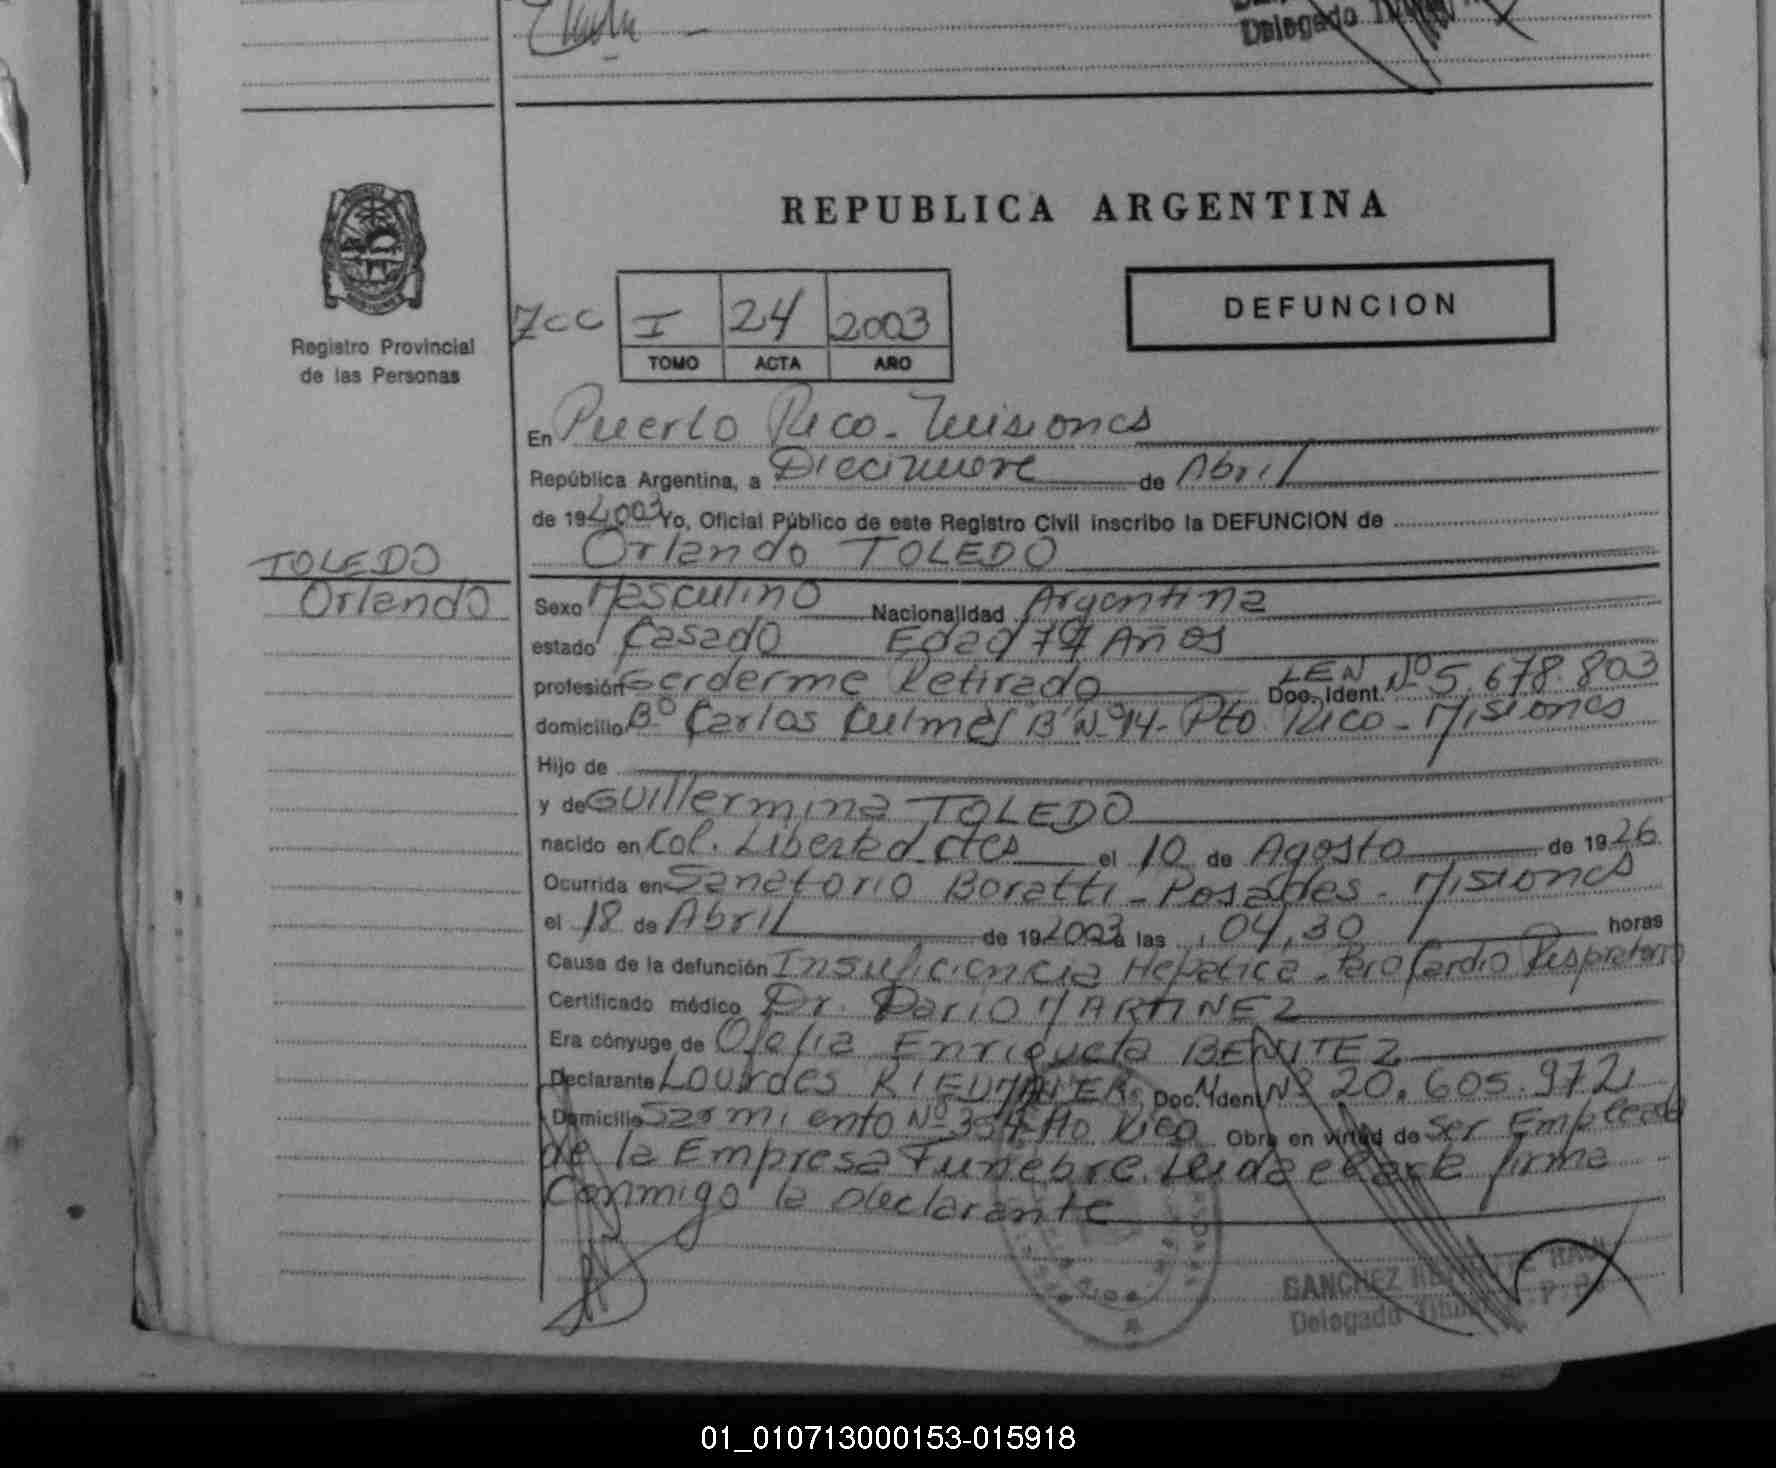 Delegado
REPUBLICA ARGENTINA
7cc I 24 2003
TOMO ACTA AÑO
DEFUNCION
Registro Provincial
de las Personas
En Puerto Rico - Misiones
República Argentina, a Diecinueve de Abril
de 19 2003 Yo, Oficial Público de este Registro Civil inscribo la DEFUNCION de
Orlando TOLEDO
TOLEDO
Orlando
Sexo Masculino Nacionalidad Argentina
estado Casado Edad Años
profesión Gerderme Retirado Doc. Ident. LEN Nº 5.678.803
domicilio Bº Carlos Culmey B Nº 14 - Pto. Rico - Misiones
Hijo de
y de Guillermina TOLEDO
nacido en Col. Libertad Ctes el 10 de Agosto de 1926
Ocurrida en Sanatorio Boratti - Posadas - Misiones
el 18 de Abril de 19 2003 a las 04,30 horas
Causa de la defunción Insuficiencia Hepatica - Paro Cardio Respiratorio
Certificado médico Dr. Dario MARTINEZ
Era cónyuge de Ofelia Enriqueta BENITEZ
Declarante Lourdes RIEDMAIER Doc. Ident. Nº 20.605.972
Domicilio Sarmiento Nº Pto Rico Obra en virtud de ser Empleada
de la Empresa Funebre. Leida el acta firma
Conmigo la declarante
SANCHEZ
Delegado Titular
01_010713000153-015918